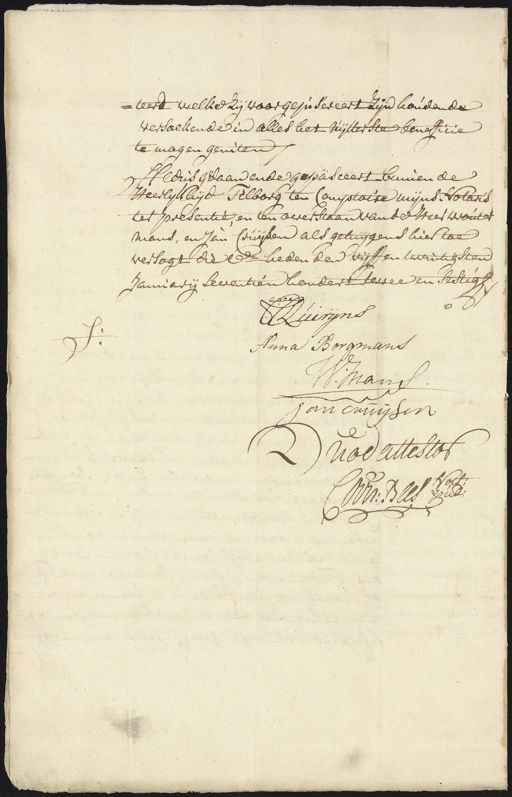 =teert welke zij waar gepasseert zijn houdende
versoekende in alles het uijtterste benefitie
te mogen genieten /
Aldus gedaan ende gepasseert binnen de
Heerlijkhijd Tilborg ten Comptoire mijns Notaris
ter presentie, en ten overstaan van de Heer Wouter
Mans, en Jan Cruijsen als getuijgens hier toe
versogt die den heden den vijff en twintigsten
Januarij seventien hondert twee en sestigh
Quirijns
Anna Borgmans
W: Mans
S:
Jan Cruijsen
Quod attestor
Corn: Bles Not: